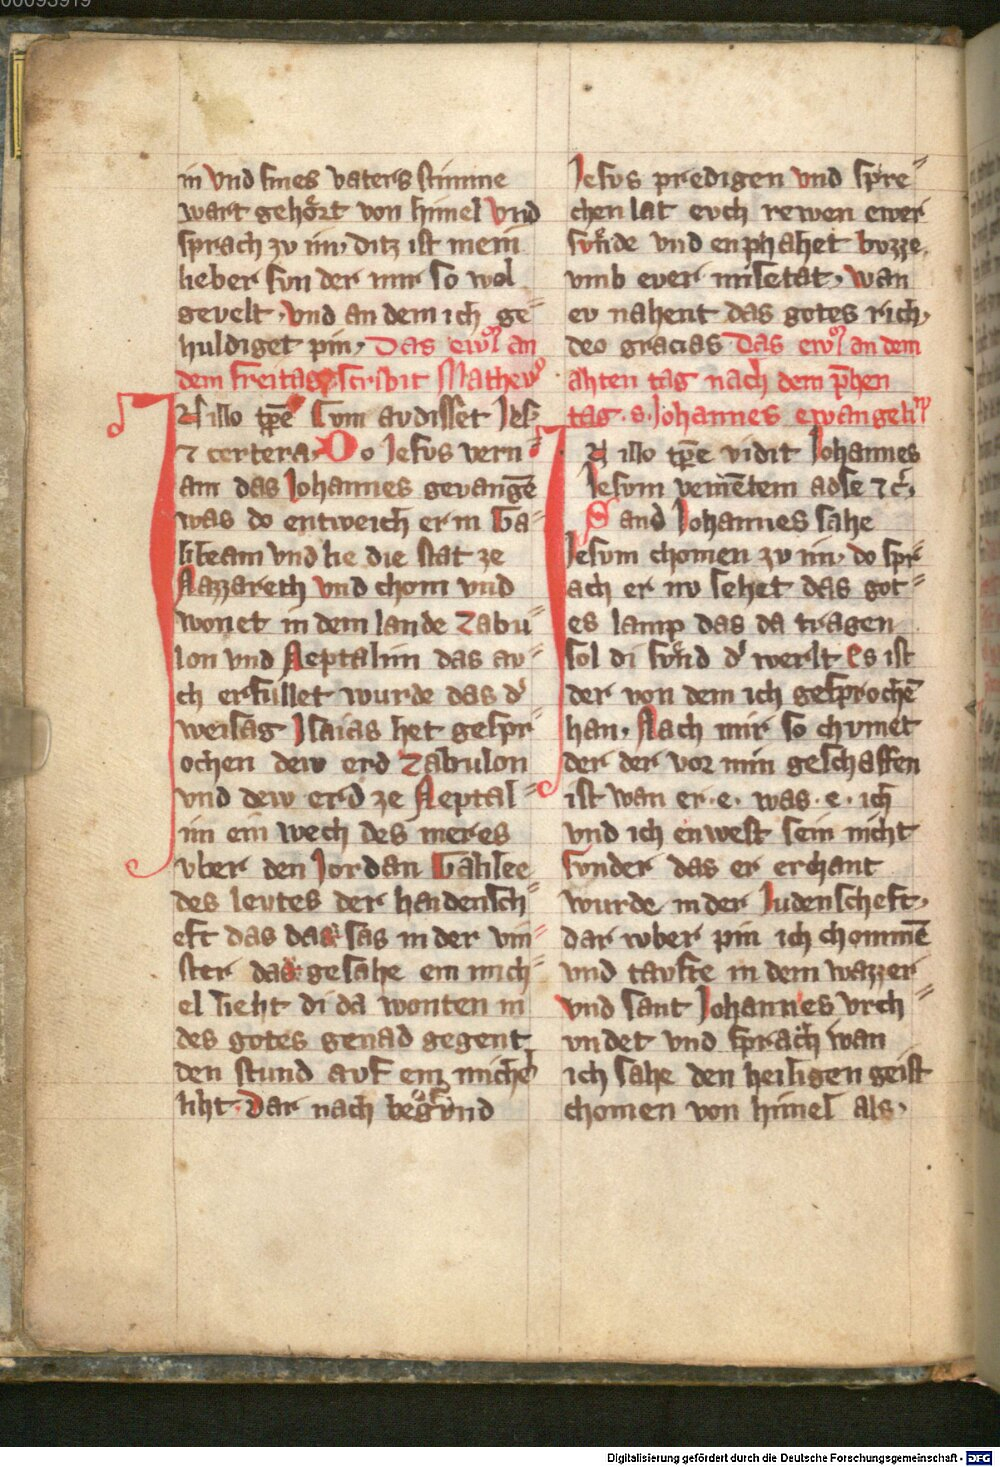 00093919
in vnd sines vaters stimme
wart gehört von himel vnd
sprach zv im, ditz ist mein
lieber svn der mir so wol
gevelt, vnd an dem ich ge=
huldiget pin, Das ewͦl an
dem freitag scribit Matheuͦ
N illo tp̄e Cum avdisset Jesꝰ
⁊ cetera, Do Jesvs vern=
am das Johannes gevangē
was do entweich er in Ga=
lileam vnd lie die stat ze
Nazzareth vnd chom vnd
wonet in dem lande Zabu=
lon vnd Neptalim das av=
ch erfullet wurde das dʼ
weisag Isaias het gespr=
ochen dew erd Zabulon
vnd dew erd ze Neptal=
im ein wech des meres
vber den Jordan Galilee
des levtes der haidensch=
eft das das sas in der vin=
ster das gesahe ein mich=
el lieht di da wonten in
des gotes genad gegent
den stund avf ein michel
liht, Dar nach begund
Jesvs predigen vnd spre=
chen lat evch rewen ewer
svnde vnd enphahet bvzze,
vmb ever misetat, wan
ev nahent das gotes rich,
deo gracias Das ewͦl an dem
ahten tag nach dem p̄hen
tag. s. Johannes ewangeliu
N illo tp̄e vidit Johannes
Jesvm venientem ad se ⁊ c̄,
Sand Johannes sahe
Jesvm chomen zv im, do spr=
ach er nv sehet das got=
es lamp das da tragen
sol di svnd dʼ werlt es ist
der von dem ich gesprochē
han, Nach mir so chvmet
der der vor mim geschaffen
ist wan er .e. was .e. ich
vnd ich enwest sein nicht
svnder das er erchant
wurde in der Judenscheft,
dar wber pin ich chommē
vnd tavfte in dem wazzer
vnd sant Johannes vrch=
vndet vnd sprach wan
ich sahe den heiligen geist
chomen von himel als,
Digitalisierung gefördert durch die Deutsche Forschungsgemeinschaft - DFG